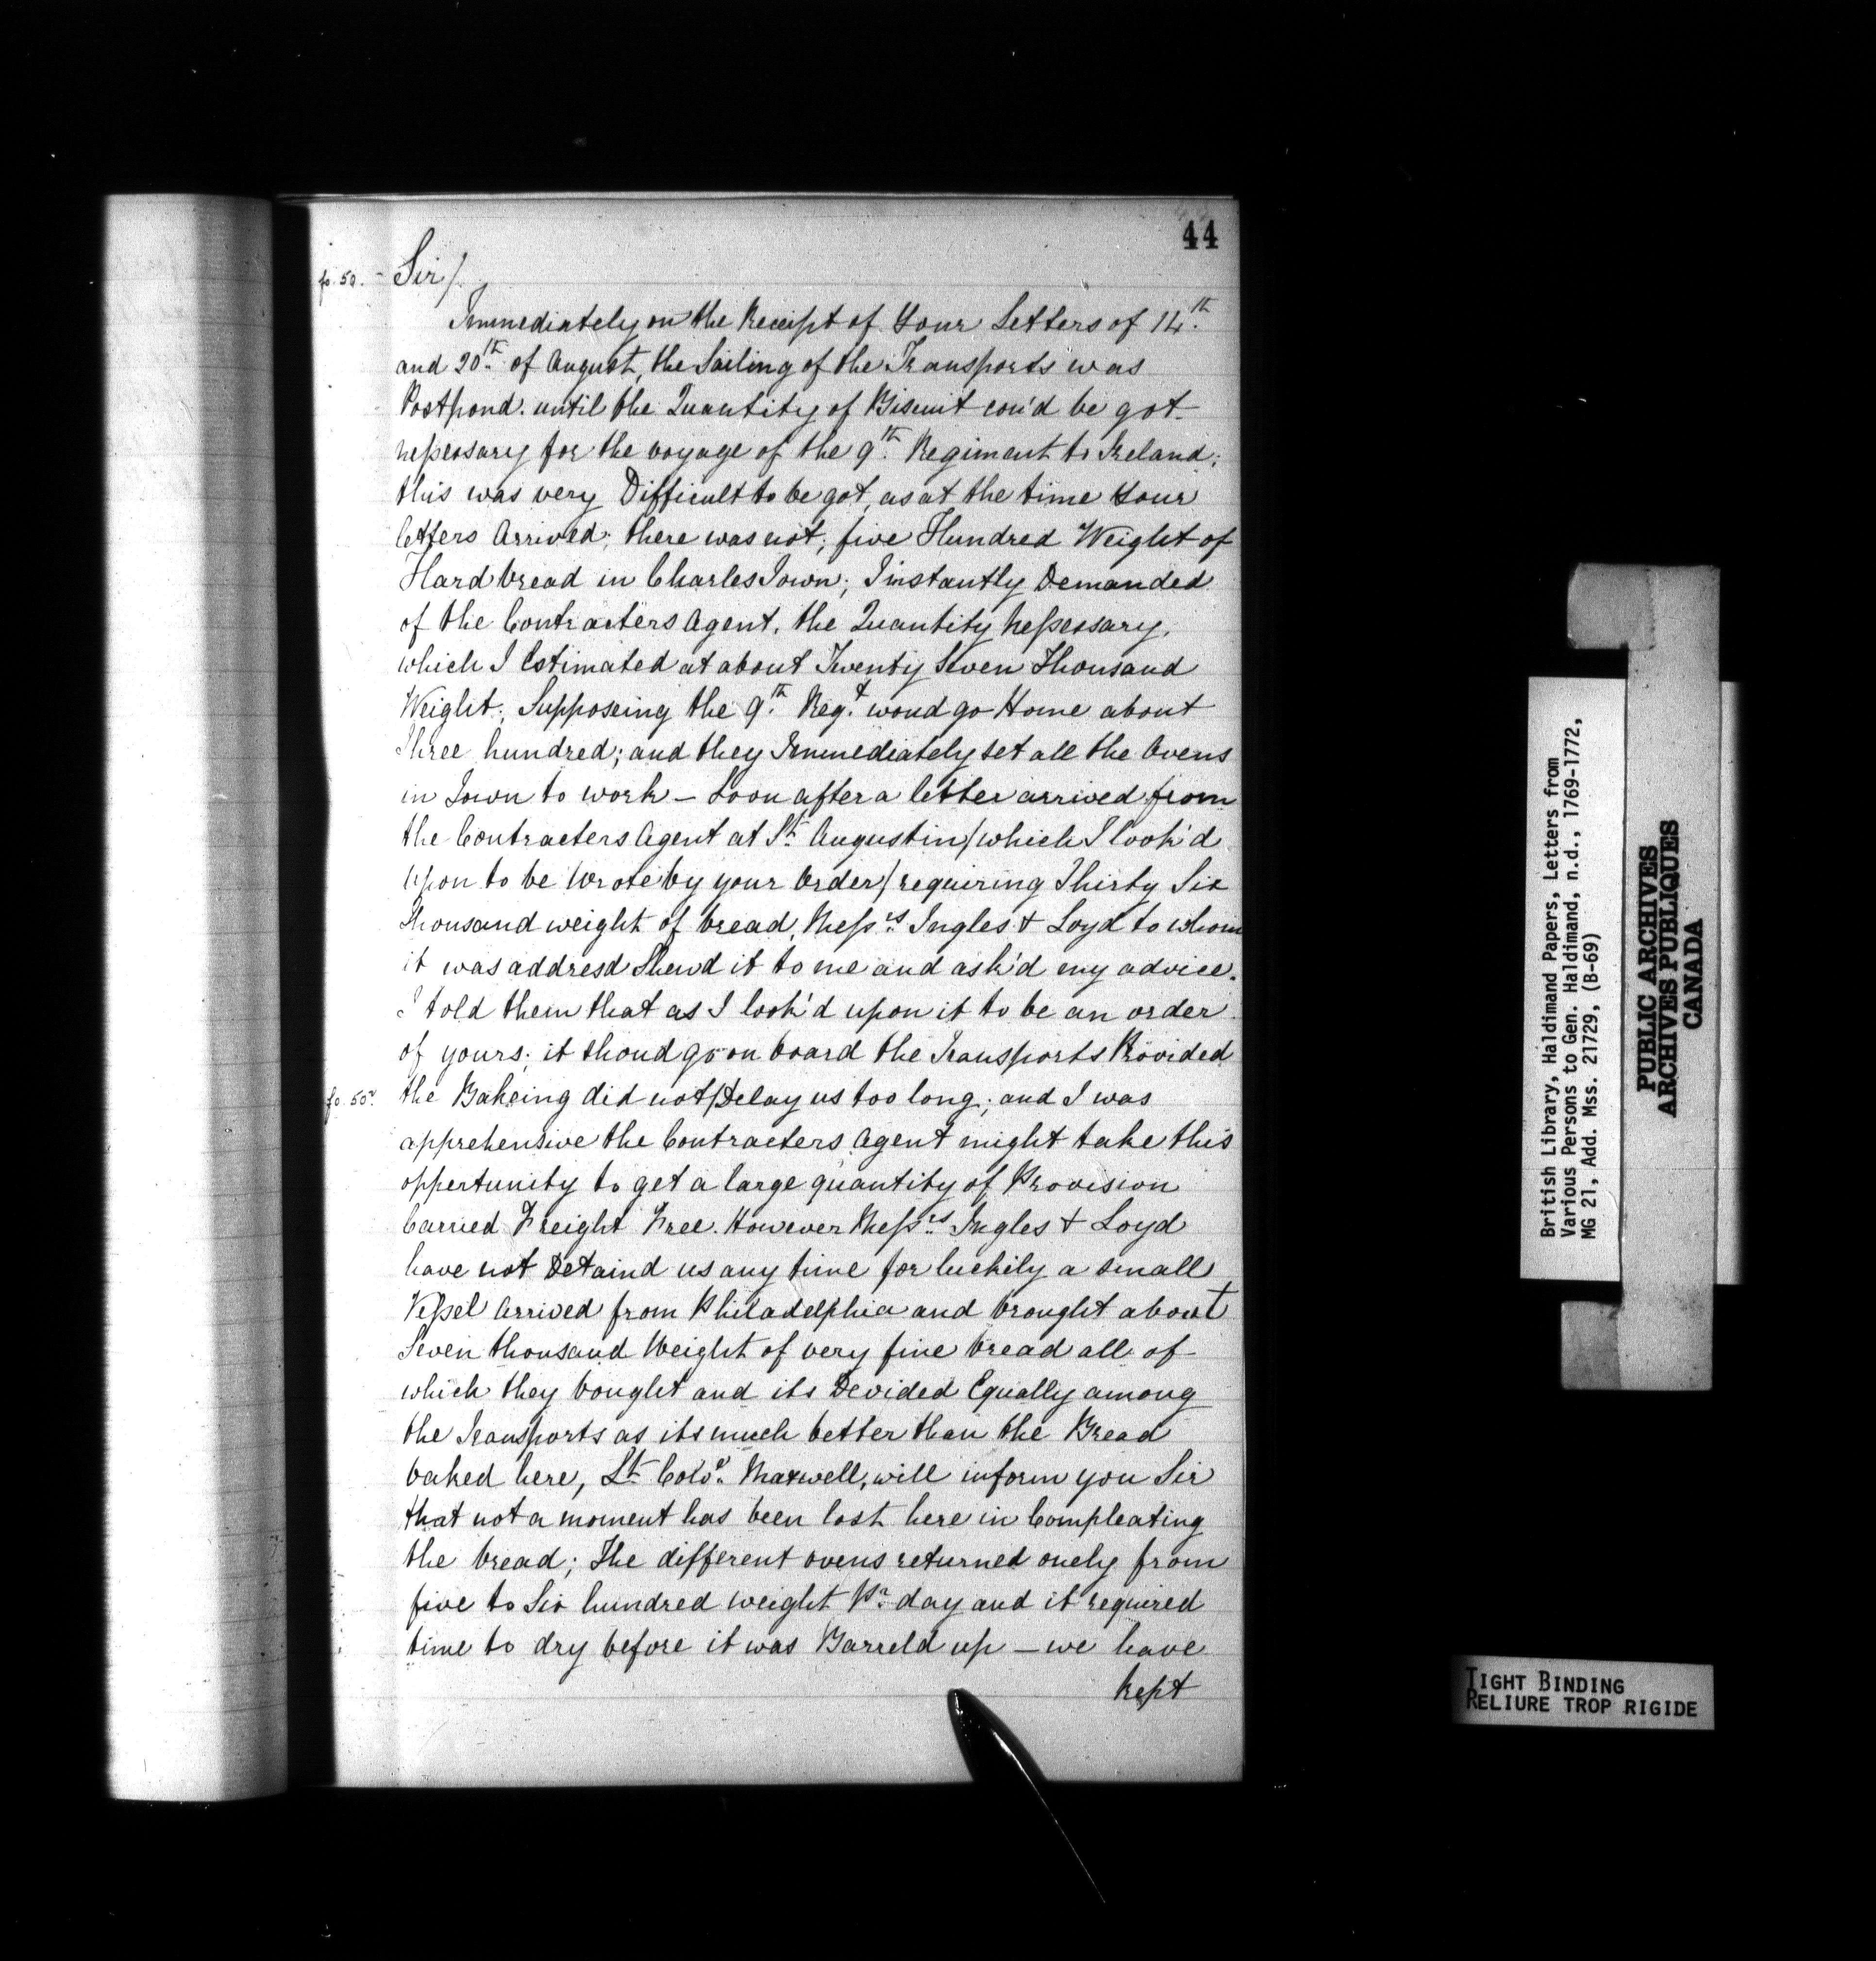 44
fo. 50. - Sir/.
Immediately on the Receipt of Your Letters of 14.th
and 20th of August, the Sailing of the Transports was
Postpond. until the Quantity of Biscuit cou'd be got
nessessary for the voyage of the 9th. Regiment to Ireland;
this was very Difficult to be got, as at the time Your
letters Arrived; there was not; five Hundred Weight of
Hard bread in Charles Town; I instantly Demanded
of the Contracters Agent, the Quantity Nessessary,
which I Estimated at about Twenty Seven Thousand
Weight; Supposeing the 9th. Regt. woud go Home about
Three hundred; and they Immediately set all the Ovens
in Town to work – Soon after a letter arrived from
the Contracters Agent at St. Augustin/which I look'd
upon to be Wrote by your Order/requiring Thirty Six
Thousand weight of bread, Messrs. Ingles & Loyd to whom
it was addresd Shewd it to me and ask'd my advice.
I told them that as I look'd upon it to be an order
of yours; it shoud go on board the Transports Provided
fo. 50v. the Bakeing did not Delay us too long; and I was
apprehensive the Contracters Agent might take this
oppertunity to get a large quantity of Provision
Carried Freight Free. However Messrs. Ingles & Loyd
have not Detaind us any time for luckily a small
Vessel Arrived from Philadelphia and brought about
Seven thousand Weight of very fine bread all of
which they bought and its Devided Equally among
the Transports as its much better than the Bread
baked here, Lt. Colol. Maxwell, will inform you Sir
that not a moment has been lost here in Compleating
the bread; The different ovens returned onely from
five to Six hundred weight Pr. day and it required
time to dry before it was Barreld up – we have
Kept
British Library, Haldimand Papers, Letters from
Various Persons to Gen. Haldimand, n.d., 1769-1772,
MG 21, Add. Mss. 21729, (B-69)
PUBLIC ARCHIVES
ARCHIVES PUBLIQUES
CANADA
TIGHT BINDING
RELIURE TROP RIGIDE